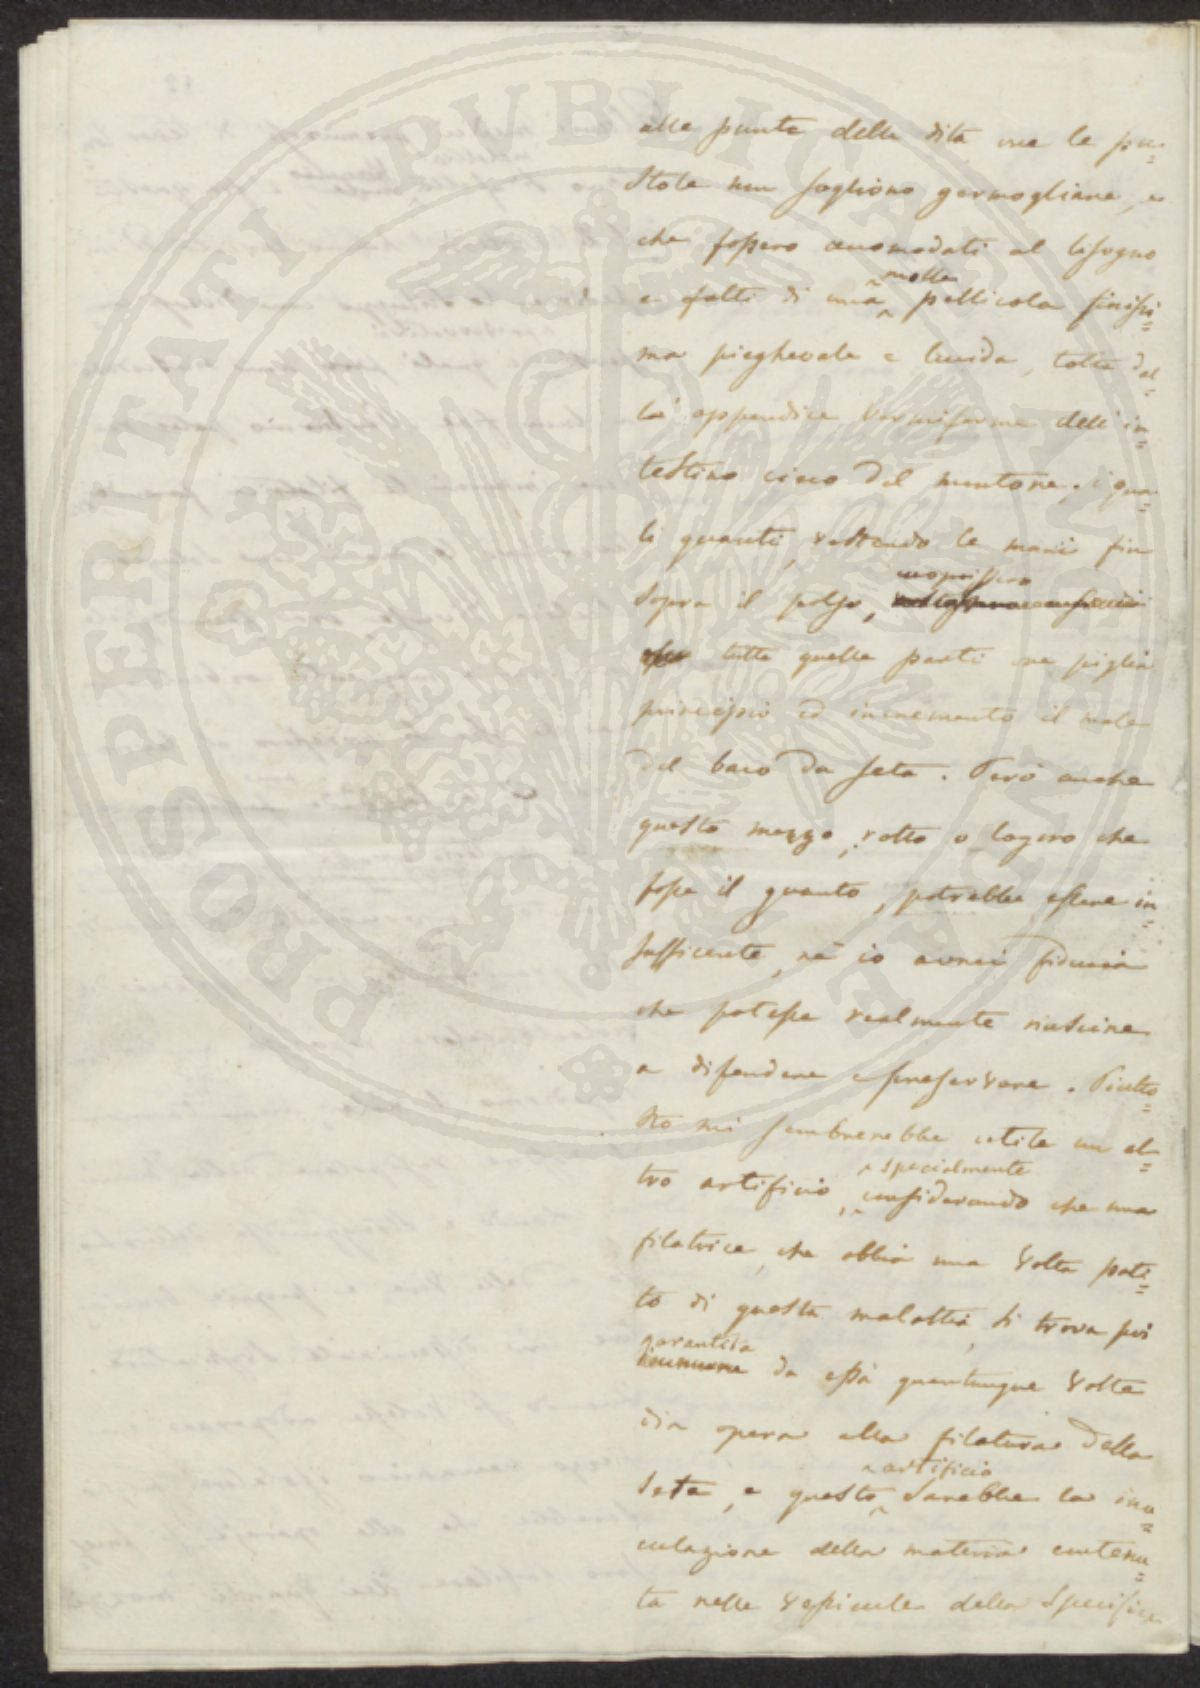 alle punte delle dita ove le pu=
stole non sogliono germogliare, e
che fossero accomodati al bisogno
molle
e fatti di una pellicola finissi=
ma pieghevole e lucida, tolta dal=
la appendice vermiforme dell'in=
testino cieco del montone, i qua=
li guanti, vestendo le mani fin
coprissero
sopra il polso,
tutte quelle parti ove piglia
principio ed incremento il male
del baco da seta. Però anche
questo mezzo, rotto o logoro che
fosse il guanto, potrebbe essere in=
sufficente, nè io avrei fiducia
che potesse realmente riuscire
a difendere e preservare. Piutto=
sto mi sembrerebbe utile un al=
specialmente
tro artificio, considerando che una
filatrice, che abbia una volta pati=
to di questa malattia, si trova poi
garantita
immune da essa quantunque volte
dia opera alla filatura della
artificio
seta, e questo sarebbe la ino=
culazione della materia contenu=
ta nelle vessicule della specifica
PROSPERITATI PUBLICAE AUGENDAE